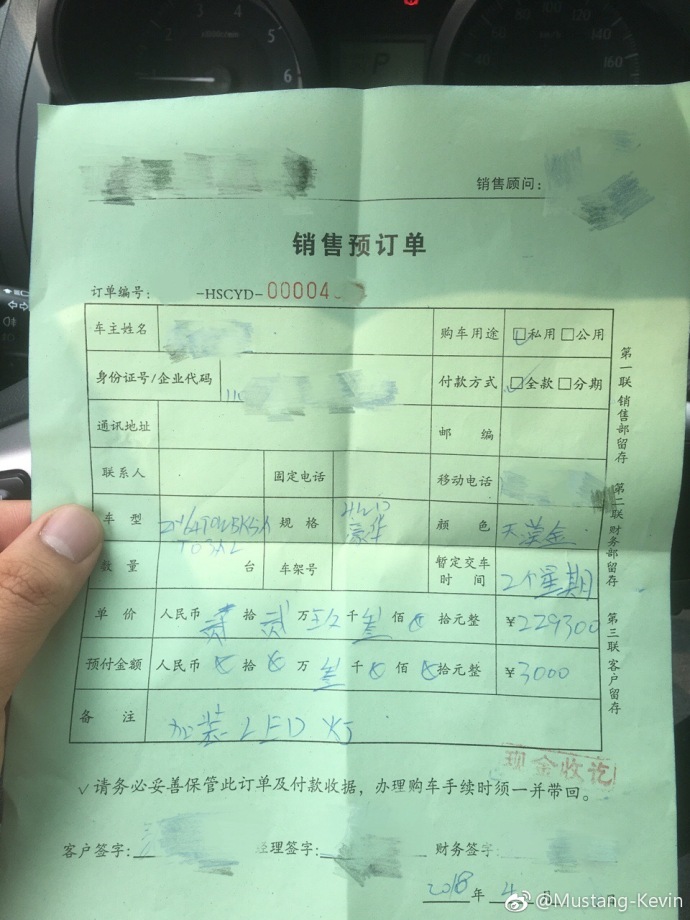 5
6
120
140
160
P
销售顾问：
销售预订单
订单编号： -HSCYD- 00004
车主姓名 购车用途 ☑私用 □公用
身份证号/企业代码 11 付款方式 ☑全款 □分期
通讯地址 邮 编
联系人 固定电话 移动电话
车 型 规 格 豪华 颜 色 天漠金
数量 台 车架号 暂定交车时间 2个星期
单 价 人民币 贰 拾 贰 万 玖 千 叁 佰 拾元整 ¥229300
预付金额 人民币 拾 万 叁 千 佰 拾元整 ¥3000
备 注 加装LED灯
第一联 销售部留存
第二联 财务部留存
第三联 客户留存
现金收讫
√请务必妥善保管此订单及付款收据，办理购车手续时须一并带回。
客户签字： 经理签字： 财务签字：
2018年4月
@Mustang-Kevin